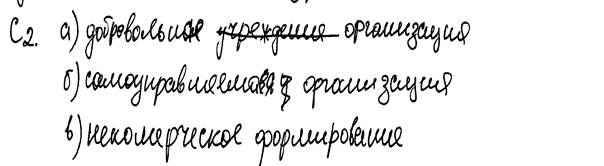 С2. а) добровольная учреждения организация
б) самоуправляемая организация
в) некомерческое формирование